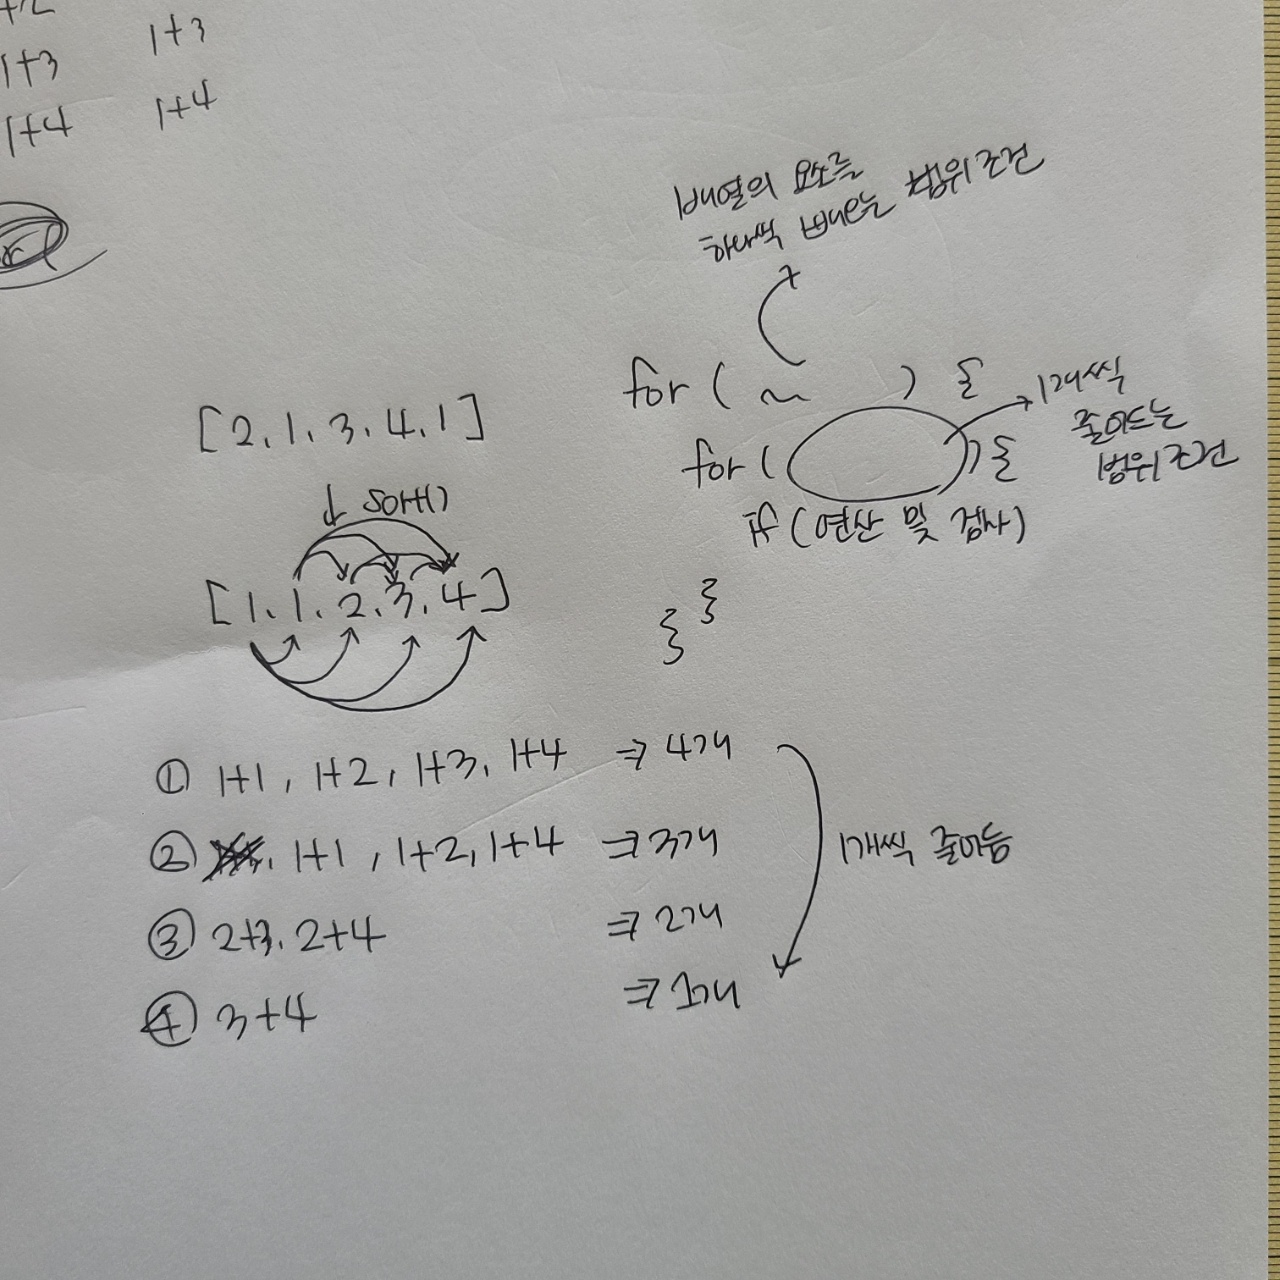 1+3
1+4
1+3
1+4
배열의 요소를
하나씩 빼내는 범위 조건
for ( ~ ) {
for ( ) {
1개씩
줄어드는
범위 조건
if (연산 및 검사)
}
}
[2, 1, 3, 4, 1]
↓ sort()
[1, 1, 2, 3, 4]
① 1+1, 1+2, 1+3, 1+4 ⇒ 4개
② 1+1, 1+2, 1+4 ⇒ 3개
③ 2+3, 2+4 ⇒ 2개
④ 3+4 ⇒ 1개
1개씩 줄어듬